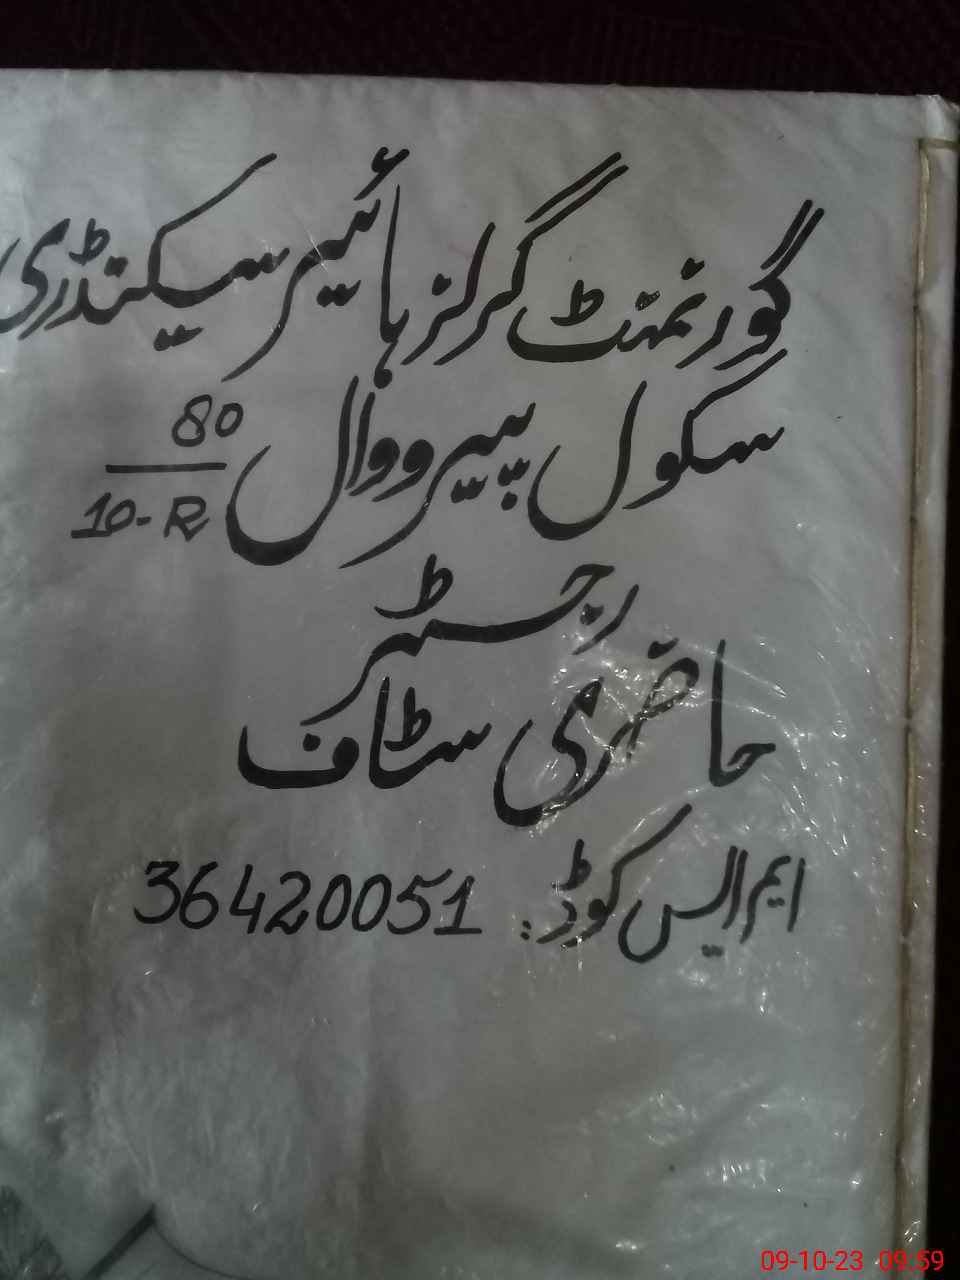 گورنمنٹ گرلز ہائیر سیکنڈری
سکول پیرووال 80/10-R
رجسٹر
حاضری سٹاف
ایم ایس کوڈ: 36420051
09-10-23 09:59